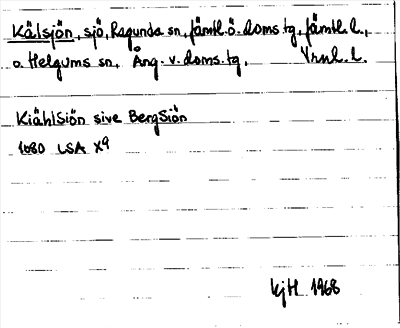 Kälsjön, sjö, Ragunda sn, Jämtl. ö. doms.tg, Jämtl. l.,
o. Helgums sn, Ång. v. doms.tg, Vrnl. l.
Kiählsiön sive BergSiön
1680 LSA X9
KjH 1968